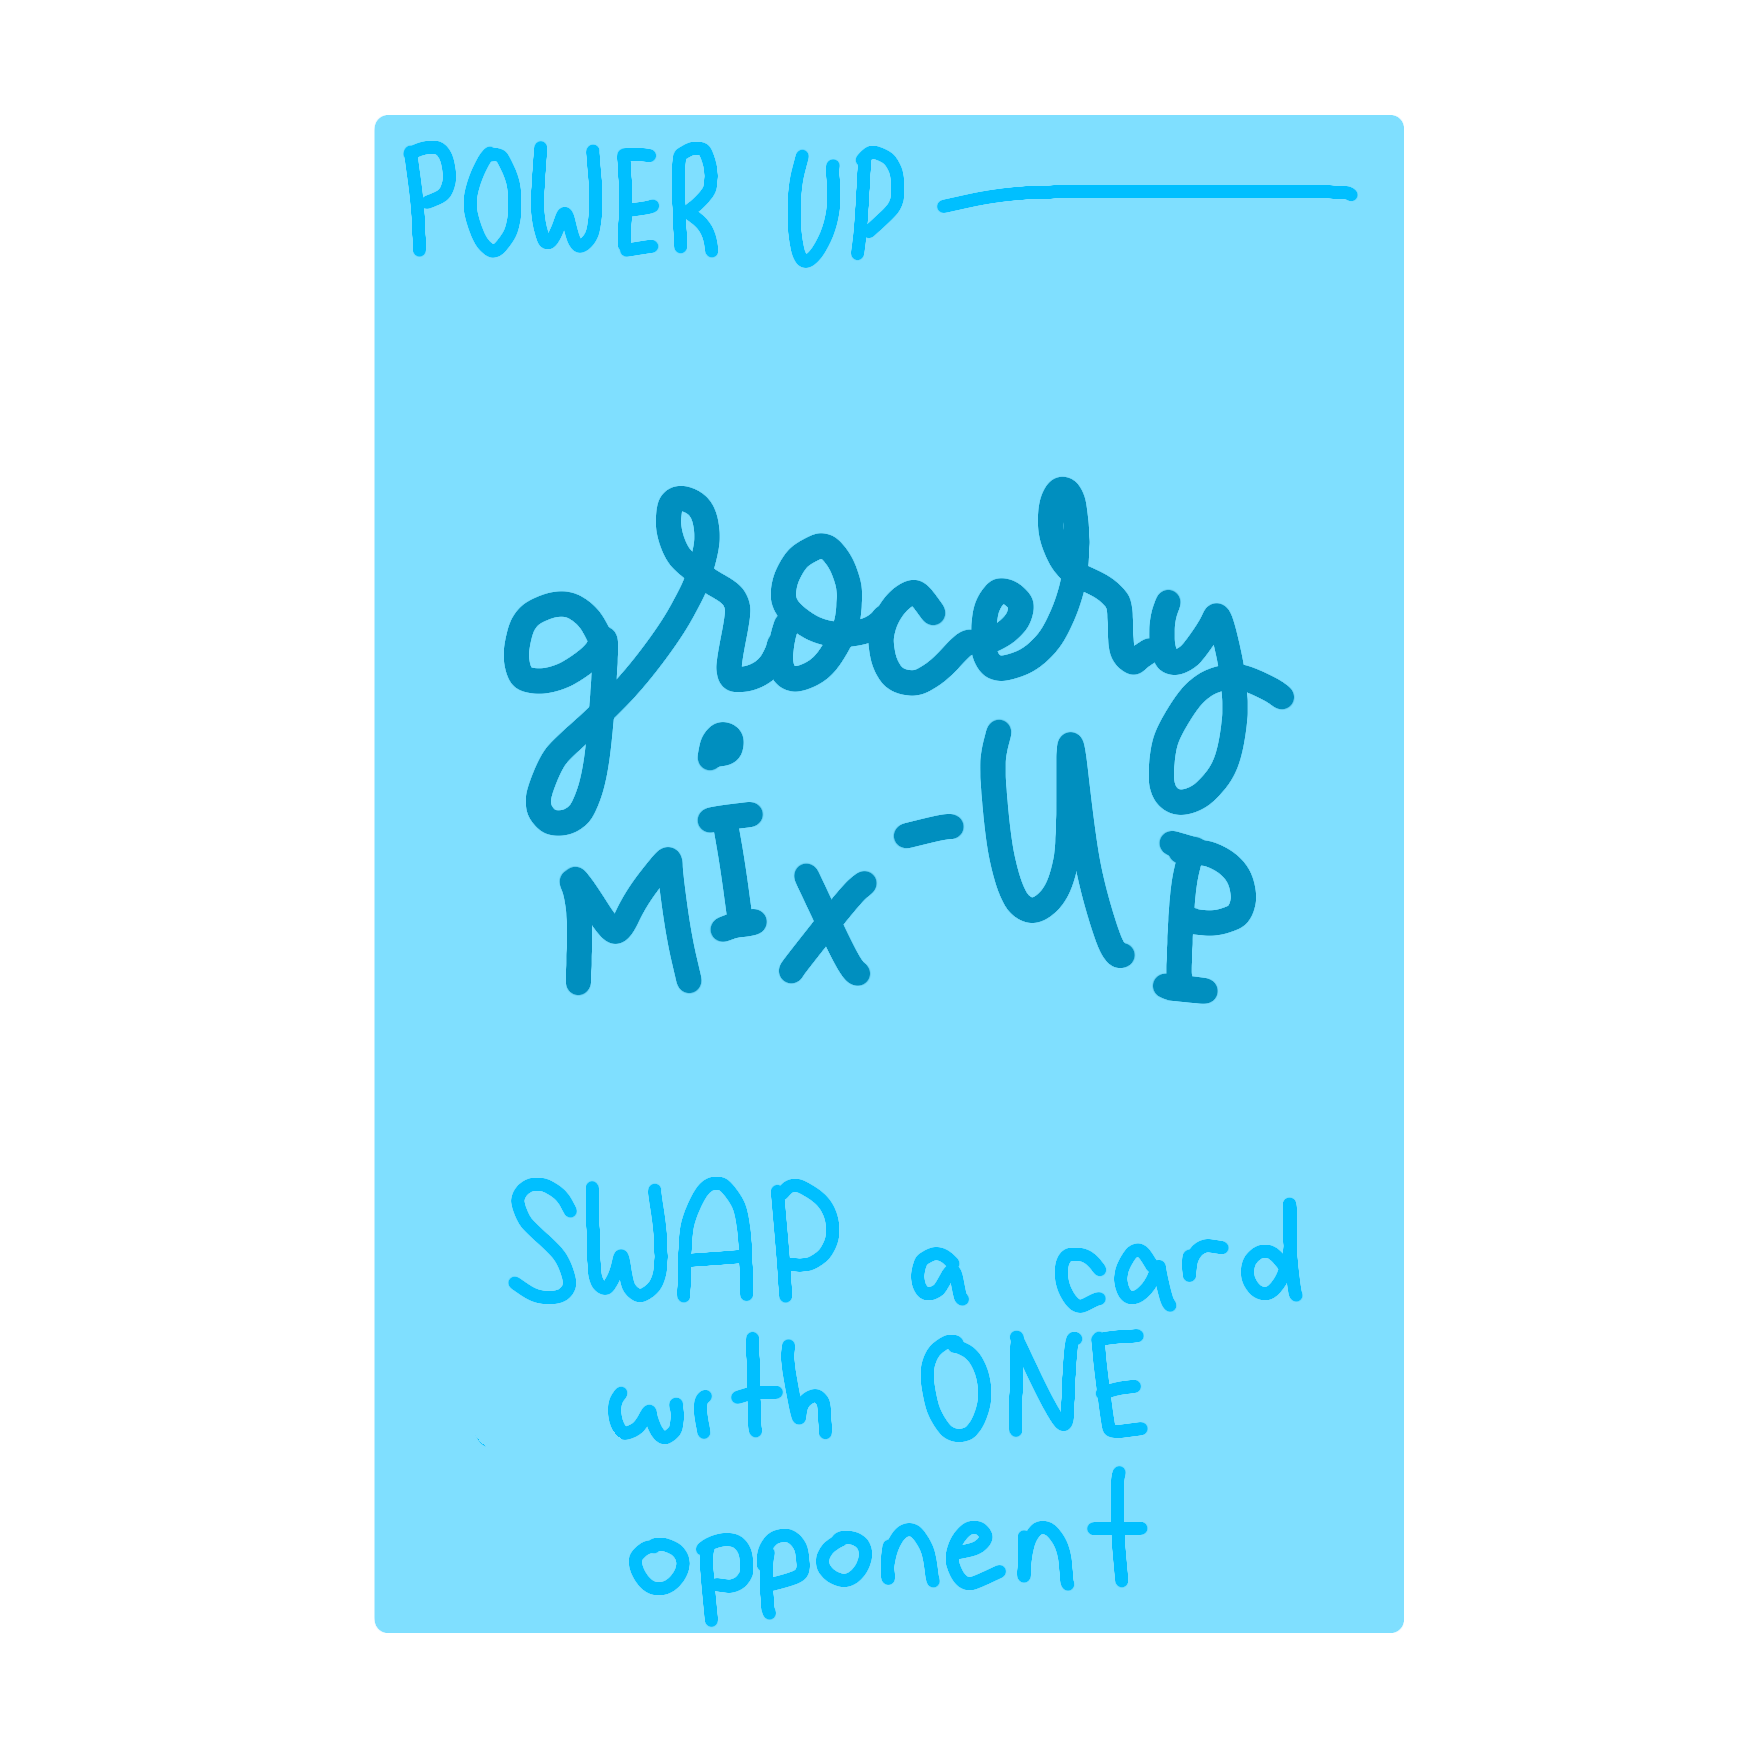 POWER UP
grocery
MIX-UP
SWAP a card
with ONE
opponent